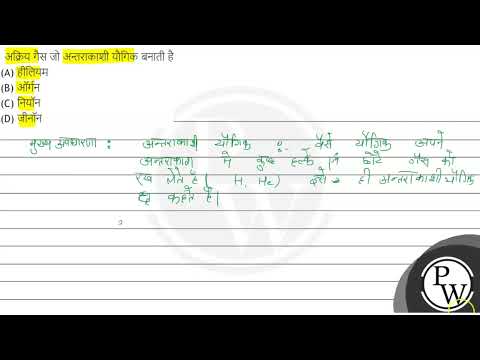 अक्रिय गैस जो अन्तराकाशी यौगिक बनाती है
(A) हीलियम
(B) ऑर्गन
(C) नियॉन
(D) जीनॉन
मुख्य अवधारणा : अन्तराकाशी यौगिक :- वैसे यौगिक अपने
अन्तराकाश में कुछ हल्के छोटे गैस को
रख लेते है ( H, He) ही अन्तराकाशी यौगिक
कहते है।
PW